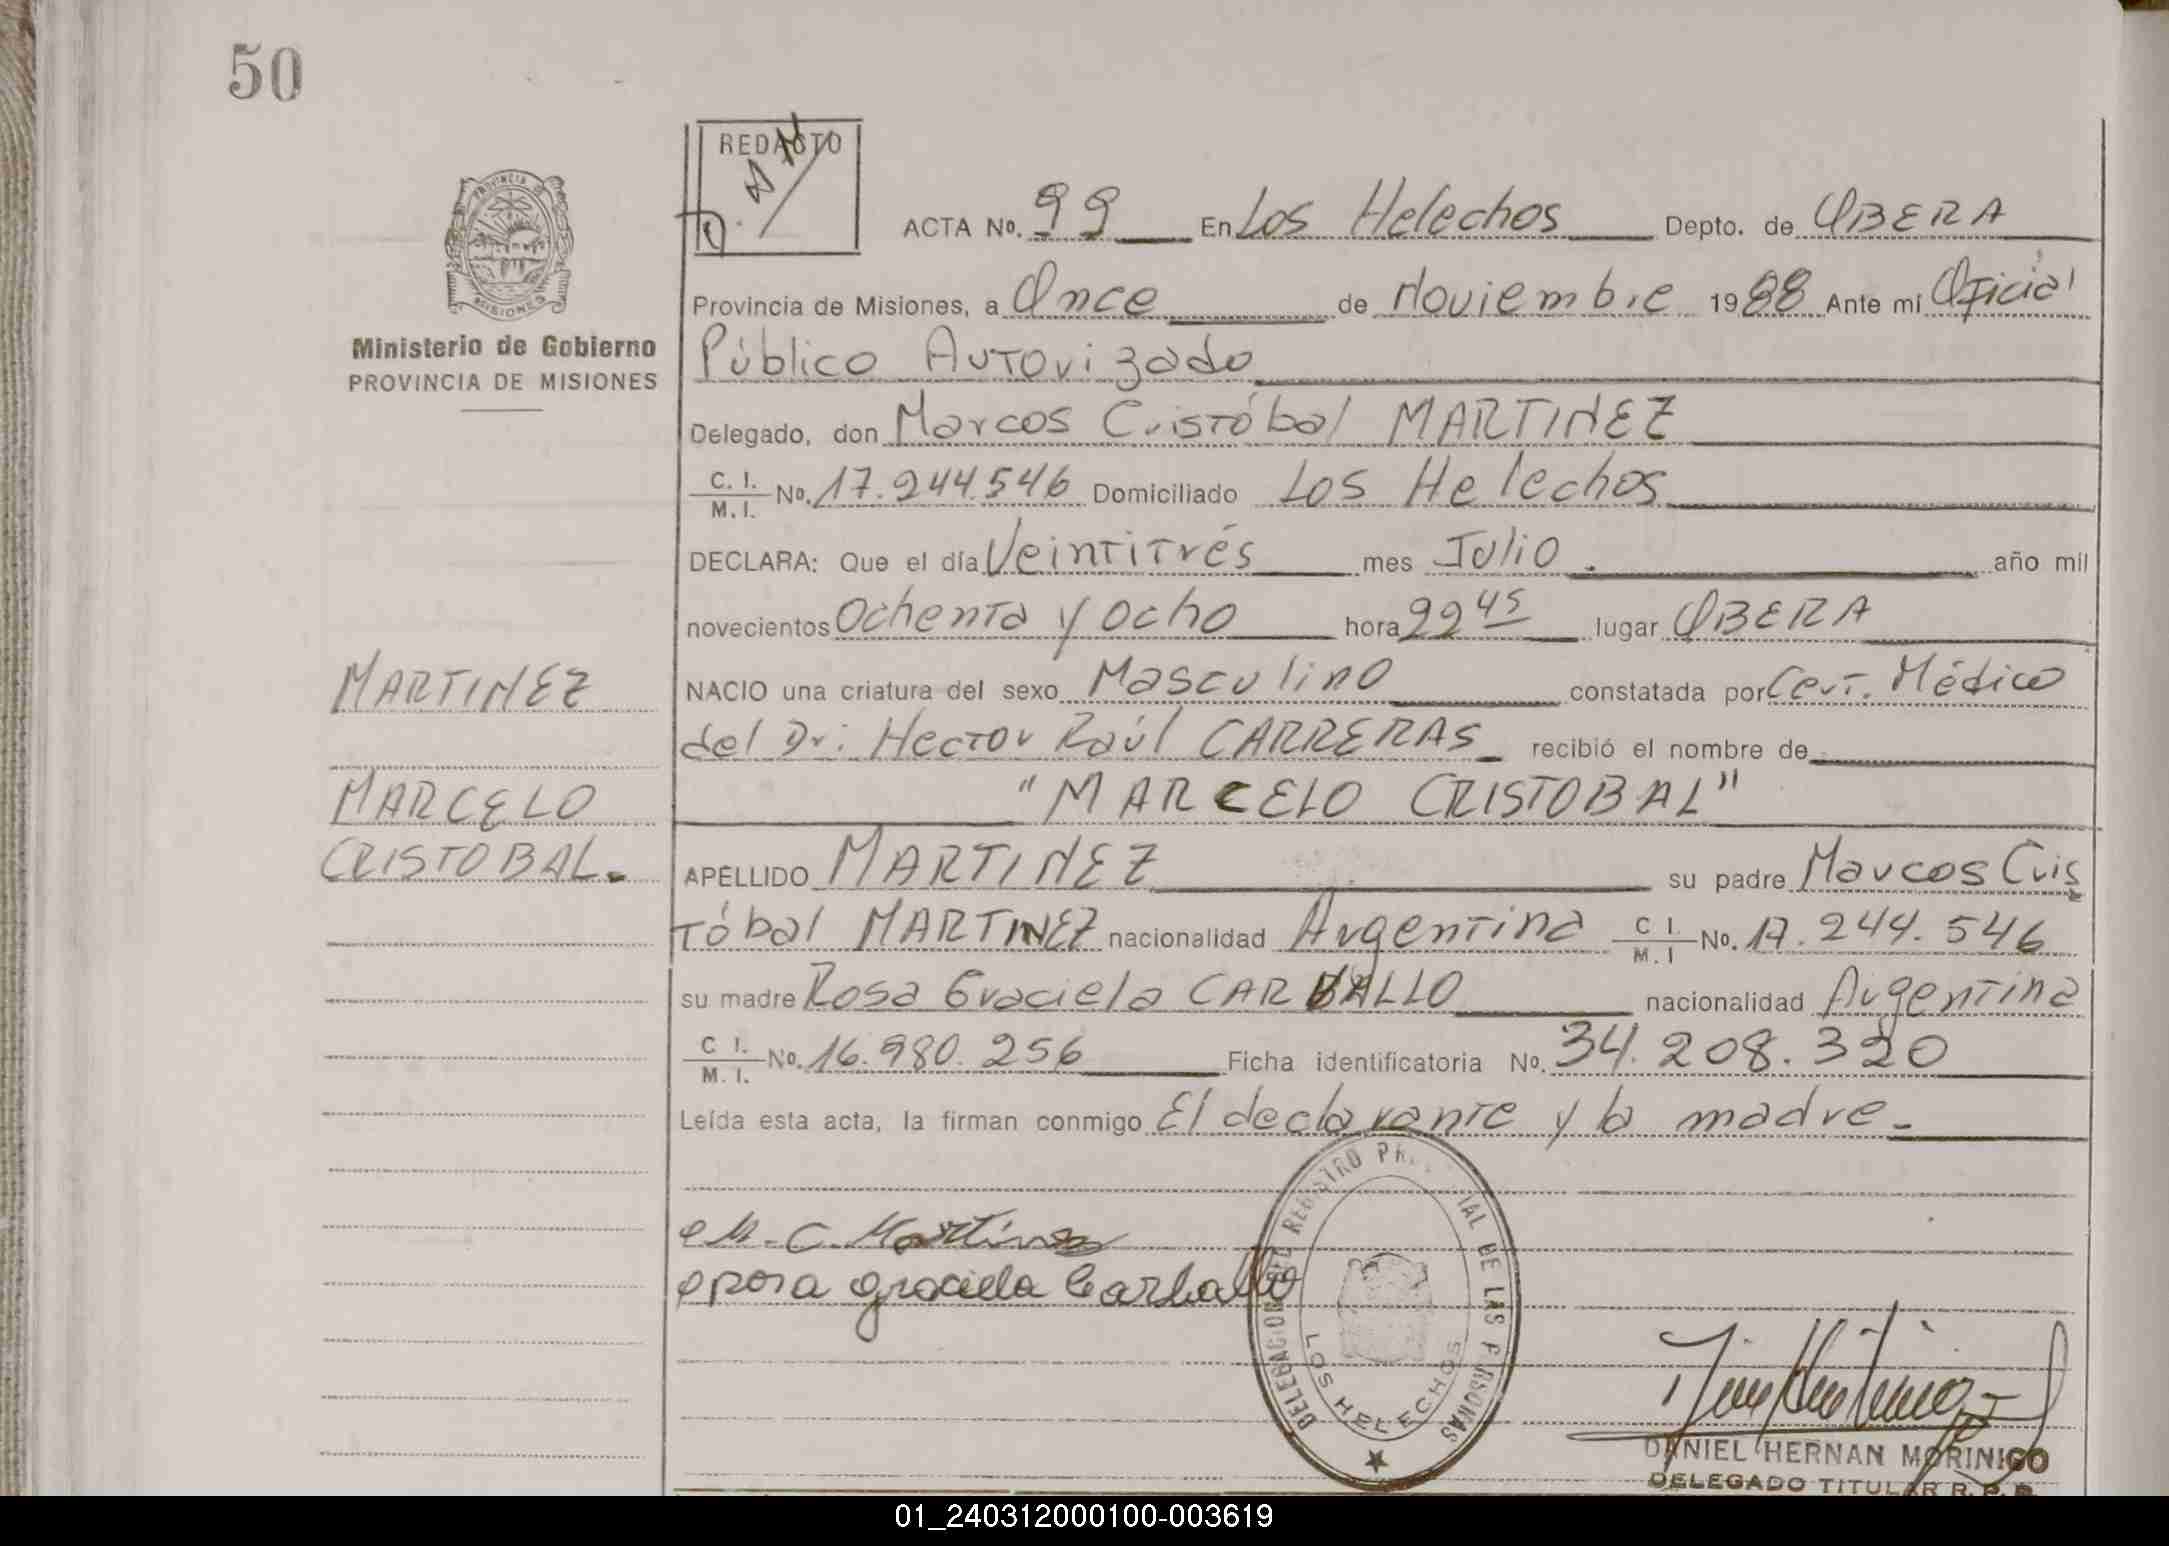 50
REDACTO
ACTA No. 99 En Los Helechos Depto. de OBERA
Provincia de Misiones, a Once de Noviembre 1988 Ante mí Oficial
Público Autorizado
Ministerio de Gobierno
PROVINCIA DE MISIONES
Delegado, don Marcos Cristóbal MARTINEZ
C. I. M. I. No. 17.244.546 Domiciliado Los Helechos
DECLARA: Que el día Veintitrés mes Julio. año mil
novecientos Ochenta y ocho hora 22 45 lugar OBERA
MARTINEZ
NACIO una criatura del sexo Masculino constatada por Cert. Médico
del Dr: Hector Raúl CARRERAS recibió el nombre de
MARCELO
"MARCELO CRISTOBAL"
CRISTOBAL.
APELLIDO MARTINEZ su padre Marcos Cris
tóbal MARTINEZ nacionalidad Argentina C I. M. I No. 17.244.546
su madre Rosa Graciela CARBALLO nacionalidad Argentina
C I. M. I. No. 16.980.256 Ficha identificatoria No. 34.208.320
Leída esta acta, la firman conmigo El declarante y la madre.
DELEGACION DEL REGISTRO PROVINCIAL DE LAS PERSONAS
LOS HELECHOS
M. C. Martinez
rosa graciela Carballo
DANIEL HERNAN MORINIGO
DELEGADO TITULAR R. P. P.
01_240312000100-003619